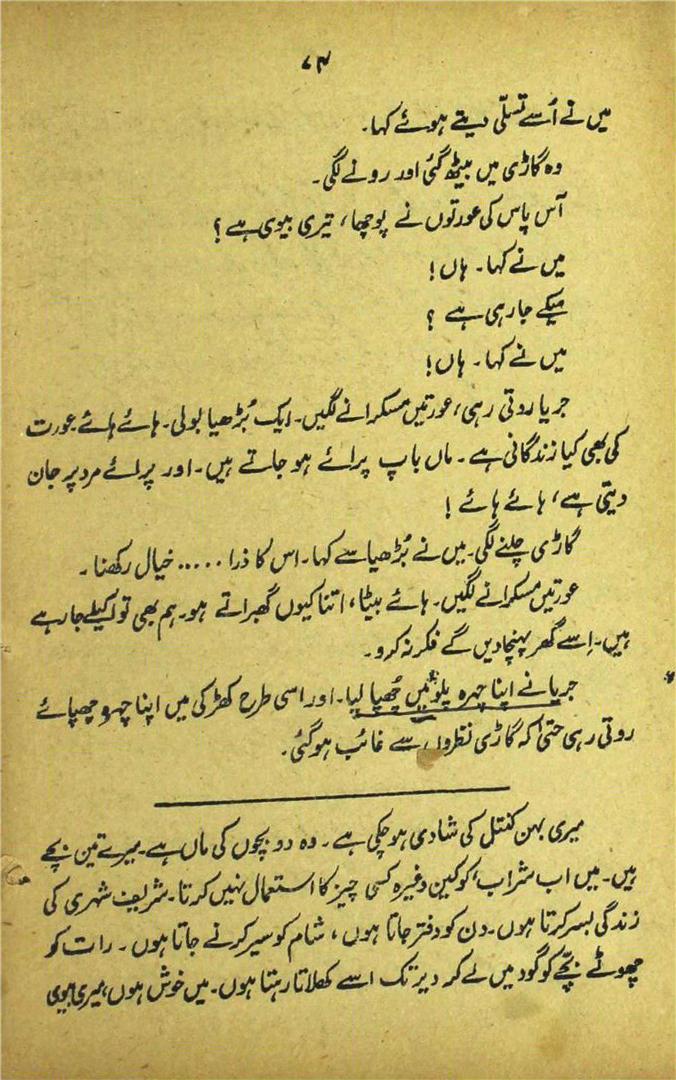 ۷۴
میں نے اُسے تسلّی دیتے ہوئے کہا۔
وہ گاڑی میں بیٹھ گئی اور رونے لگی۔
آس پاس کی عورتوں نے پوچھا، تیری بیوی ہے؟
میں نے کہا۔ ہاں!
میکے جا رہی ہے ؟
میں نے کہا۔ ہاں!
جریا روتی رہی، عورتیں مسکرانے لگیں۔ ایک بُڑھیا بولی۔ ہائے ہائے عورت
کی بھی کیا زندگانی ہے۔ ماں باپ پرائے ہو جاتے ہیں۔ اور پرائے مرد پر جان
دیتی ہے، ہائے ہائے !
گاڑی چلنے لگی۔ میں نے بُڑھیا سے کہا۔ اس کا ذرا ..... خیال رکھنا۔
عورتیں مسکرانے لگیں۔ ہائے بیٹا، اتنا کیوں گھبراتے ہو۔ ہم بھی تو اکیلے جا رہے
ہیں۔ اِسے گھر پہنچا دیں گے فکر نہ کرو۔
جریا نے اپنا چہرہ پلو میں چُھپا لیا۔ اور اسی طرح کھڑکی میں اپنا چہرہ چھپائے
روتی رہی حتیٰ کہ گاڑی نظروں سے غائب ہو گئی۔
میری بہن کنتل کی شادی ہو چکی ہے۔ وہ دو بچوں کی ماں ہے۔ میرے تین بچے
ہیں۔ میں اب شراب، کوکین وغیرہ کسی چیز کا استعمال نہیں کرتا۔ شریف شہری کی
زندگی بسر کرتا ہوں۔ دن کو دفتر جاتا ہوں، شام کو سیر کرنے جاتا ہوں۔ رات کو
چھوٹے بچّے کو گود میں لے کر دیر تک اسے کھلاتا رہتا ہوں۔ میں خوش ہوں، میری بیوی